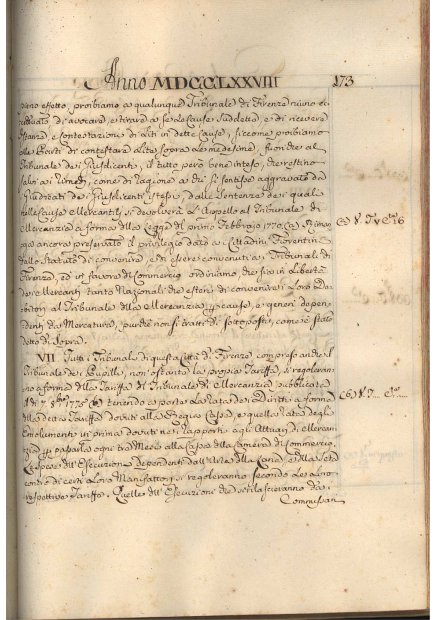 Anno MDCCLXXVIII 173
effetto, proibiamo a qualunque Tribunale di Firenze niuno
di avocare, e tirare a se le Cause suddette, e di ricevere
Istanze, e Contestazioni di Liti in dette Cause, siccome proibiamo
alle Parti di contestare altre sopra le medesime, fuori che al
Tribunale dei Giusdicenti, il tutto però bene inteso, che restino
salvi i Rimedj, come di ragione a chi si sentisse aggravato da
Giudicati dei Giusdicenti istessi, dalle Sentenze dei quali
nelle Cause Mercantili si devolverà l'Appello al Tribunale di
Mercanzia a forma della Legge di primo Febbrajo 1770
ancora preservato il privilegio dato a Cittadini Fiorentini
dallo Statuto di convenire, e di essere convenuti a Tribunali di
Firenze, ed in favore di Commercio ordiniamo che sia in Libertà
dei Mercanti tanto Nazionali che esteri di convenire i Loro Debitori
al Tribunale della Mercanzia cause, e generi dependenti
da Mercatura, purchè non si tratti di sottoposti, come è stato
detto di sopra.
VII. Tutti i Tribunali di questa Città di Firenze compreso anche il
Tribunale dei Pupilli, non ostante la propria Tariffa, si regoleranno
a forma della Tariffa di Tribunale di Mercanzia pubblicata
7. 1773 (6) tenendo a parte la Rata dei Diritti a forma
della detta Tariffa dovuti alla Regia Cassa, e quella Rata degli
Emolumenti in prima dovuti nei rapporti agli Attuari di Mercanzia
passarla ogni tre Mesi alla Cassa della Camera di Commercio.
Le Spese dell'Esecuzioni Dependenti dall'Arte della Lana, e della Seta
contro di certi Loro Manifattori si regoleranno secondo Le Loro
respettive Tariffe. Quelle dell'Esecuzioni che si rilasceranno dai
Commissari